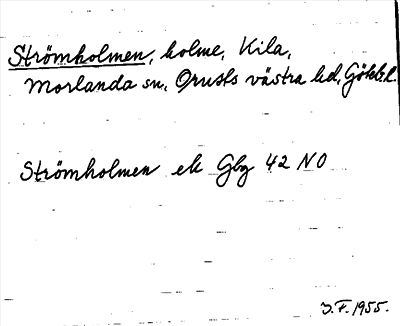 Strömholmen, holme, Kila,
Morlanda sn, Orusts västra hd, Götebl.
Strömholmen ek Gbg 42 NO
J.F. 1955.